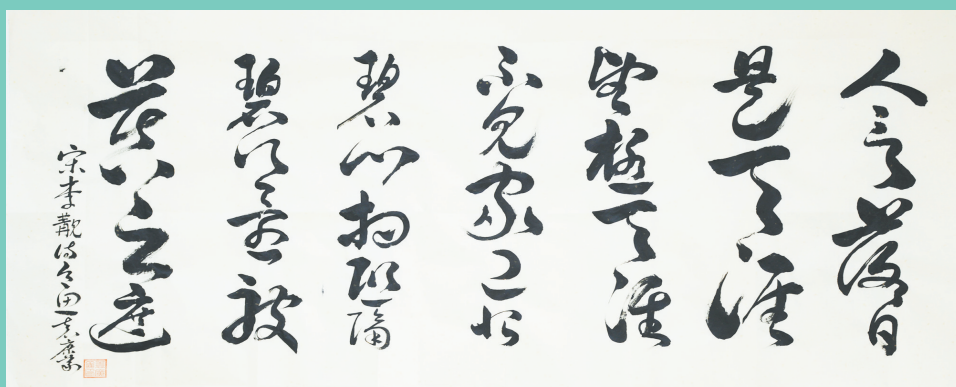 人言落日
是天涯
望極天涯
不見家已恨
碧山相阻隔
碧山還被
暮云遮
宋李覯詩